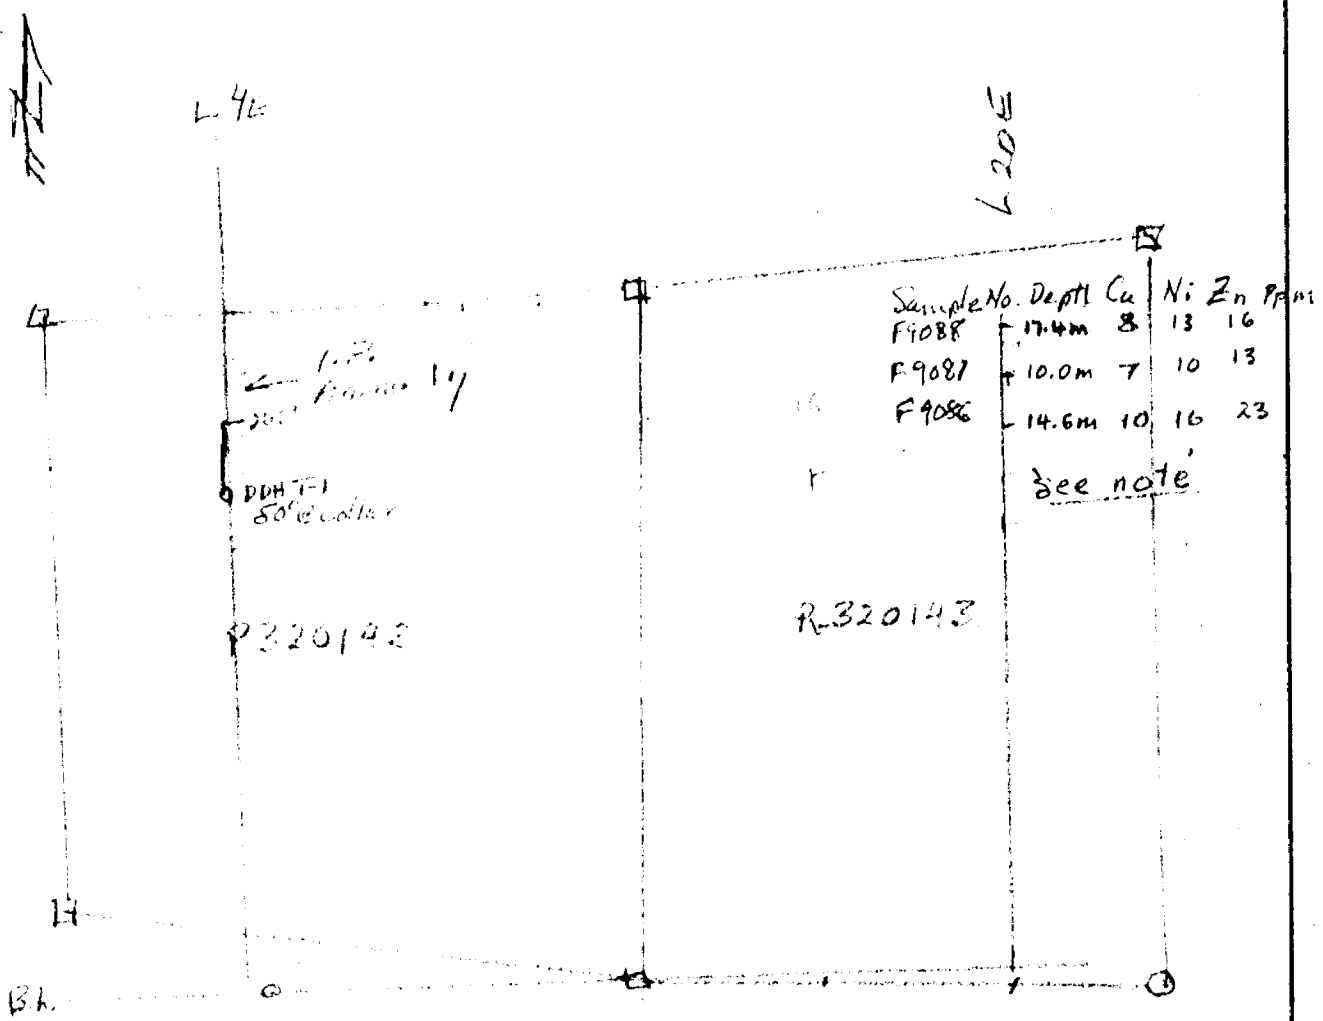 L 4E
L 20E
Sample No. Depth Cu Ni Zn ppm
F9088 17.4m 8 13 16
F9087 10.0m 7 10 13
F9086 14.6m 10 16 23
See note
I.P.
DDH T-1
50° @ collar
P320142
R320143
B.L.